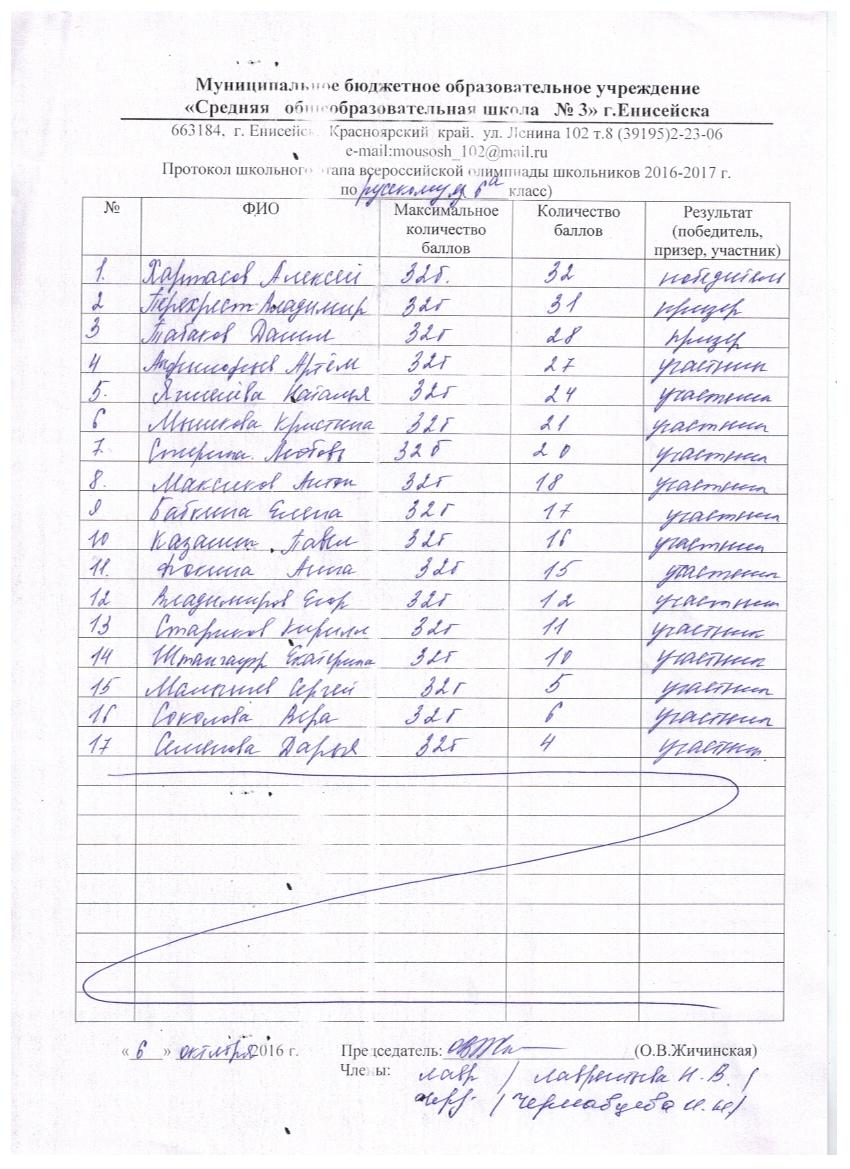 Муниципальное бюджетное образовательное учреждение
«Средняя общеобразовательная школа № 3» г.Енисейска
663184, г. Енисейск Красноярский край. ул. Ленина 102 т.8 (39195)2-23-06
e-mail:mousosh_102@mail.ru
Протокол школьного этапа всероссийской олимпиады школьников 2016-2017 г.
по русскому я 6а класс)
№ ФИО Максимальное количество баллов Количество баллов Результат (победитель, призер, участник)
1. Хартасов Алексей 32б. 32 победитель
2 Перехрест Владимир 32б 31 призер
3 Табаков Данил 32б 28 призер
4 Артём 32б 27 участник
5. Наталья 32б 24 участник
6 Мышкова Кристина 32б 21 участник
7. Любовь 32б 20 участник
8. Максиков Антон 32б 18 участник
9 Бабкина Елена 32б 17 участник
10 Казакин Павел 32б 16 участник
11. Фокина Анна 32б 15 участник
12 Владимиров Егор 32б 12 участник
13 Стариков Кирилл 32б 11 участник
14 Штангауэр Екатерина 32б 10 участник
15 Малышев Сергей 32б 5 участник
16 Соколова Вера 32б 6 участник
17 Семенова Дарья 32б 4 участник
«6» октября 2016 г. Председатель: (О.В.Жичинская)
Члены: лавр / Лаврентьева Н. В. /
/ /